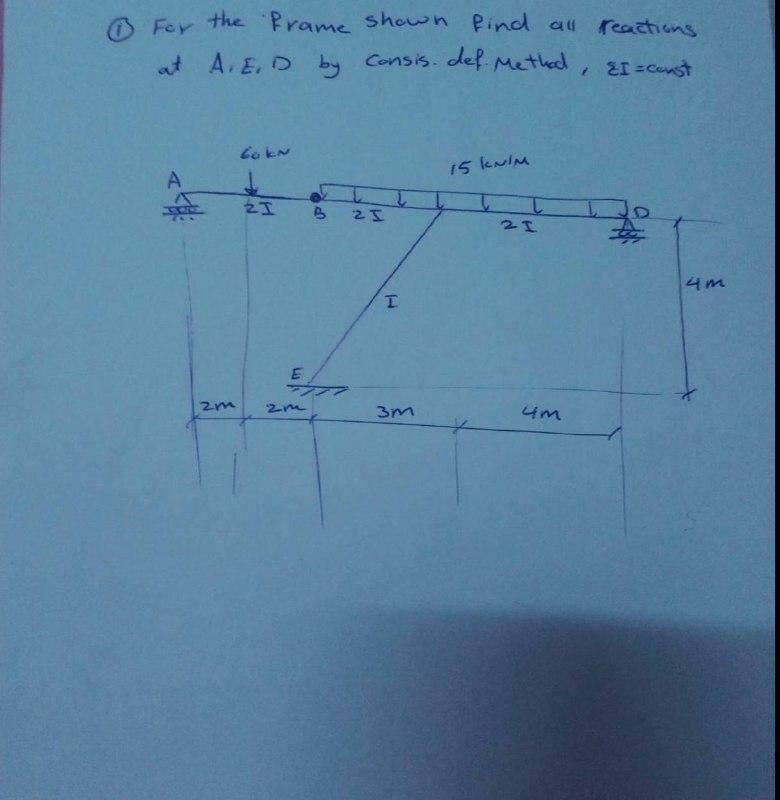 ① For the frame shown find all reactions
at A, E, D by Consis. def. Method, EI = const
60 kN
15 kN/M
A
2I
B
2I
2I
D
4m
I
E
2m
2m
3m
4m